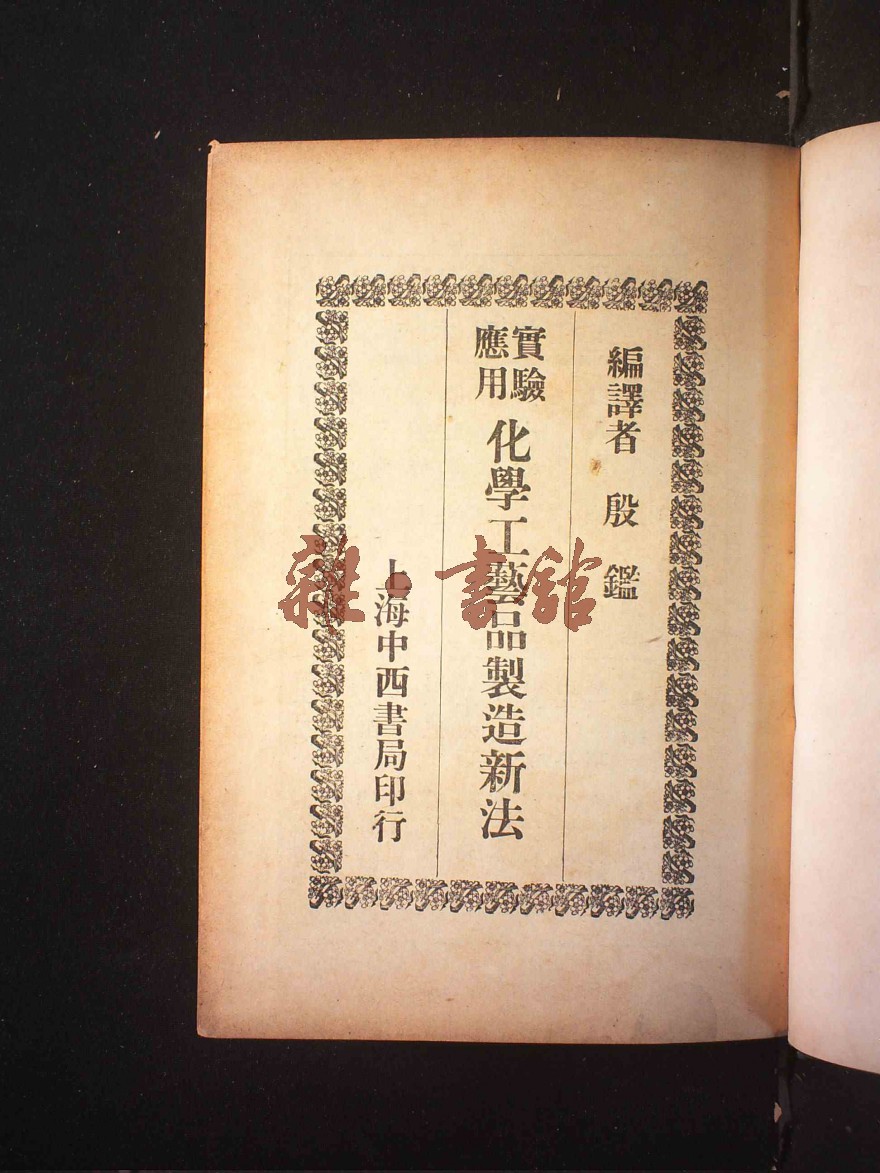 編譯者 殷鑑
實驗
應用
化學工藝品製造新法
上海中西書局印行
雜·書館